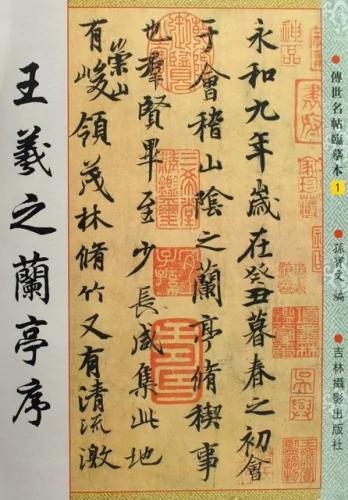 傳世名帖臨摹本
1
孫寶文 編
吉林攝影出版社
永和九年歲在癸丑暮春之初會
于會稽山陰之蘭亭脩稧事
也羣賢畢至少長咸集此地
有崇山峻領茂林脩竹又有清流激
王羲之蘭亭序